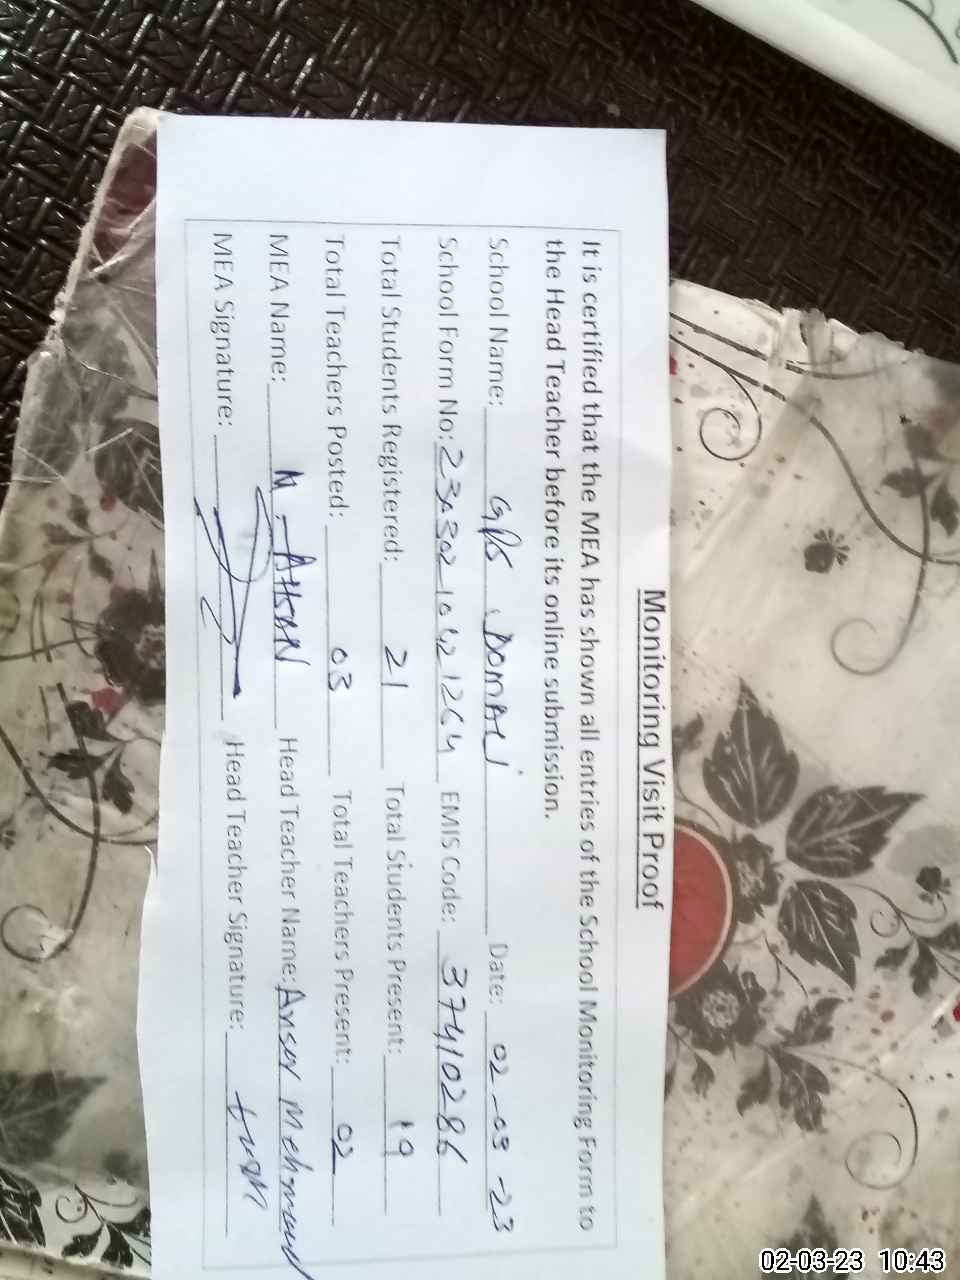 Monitoring Visit Proof
It is certified that the MEA has shown all entries of the School Monitoring Form to
the Head Teacher before its online submission.
School Name: GPS DOMALI Date: 02-03-23
School Form No: EMIS Code: 37410286
Total Students Registered: 21 Total Students Present: 19
Total Teachers Posted: 03 Total Teachers Present: 02
MEA Name: M. AHSAN Head Teacher Name: Ansar Mehmood
MEA Signature: Head Teacher Signature:
02-03-23 10:43